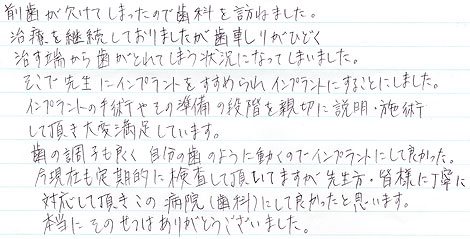 前歯が欠けてしまったので歯科を訪ねました。
治療を継続しておりましたが歯軋りがひどく
治す端から歯がとれてしまう状況になってしまいました。
そこで先生にインプラントをすすめられインプラントにすることにしました。
インプラントの手術やその準備の段階を親切に説明・施術
して頂き大変満足しています。
歯の調子も良く自分の歯のように動くのでインプラントにして良かった。
今現在も定期的に検査して頂いてますが先生方・皆様に丁寧に
対応して頂きこの病院(歯科)にして良かったと思います。
本当にそのせつはありがとうございました。